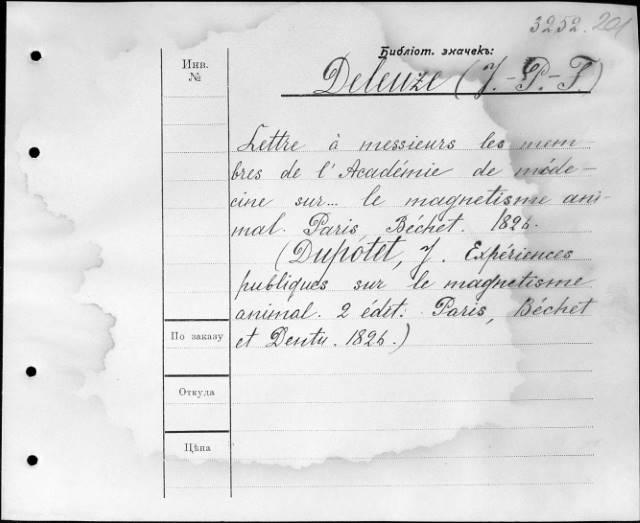 3252. 201
Библіот. значекъ:
Инв.
№
Deleuze (J.-P.-F.)
Lettre à messieurs les mem
bres de l'Académie de méde-
cine sur... le magnetisme ani-
mal. Paris, Béchet. 1826.
(Dupotet, J. Expériences
publiques sur le magnetisme
animal. 2 édit. Paris, Béchet
et Dentu. 1826.)
По заказу
Откуда
Цѣна